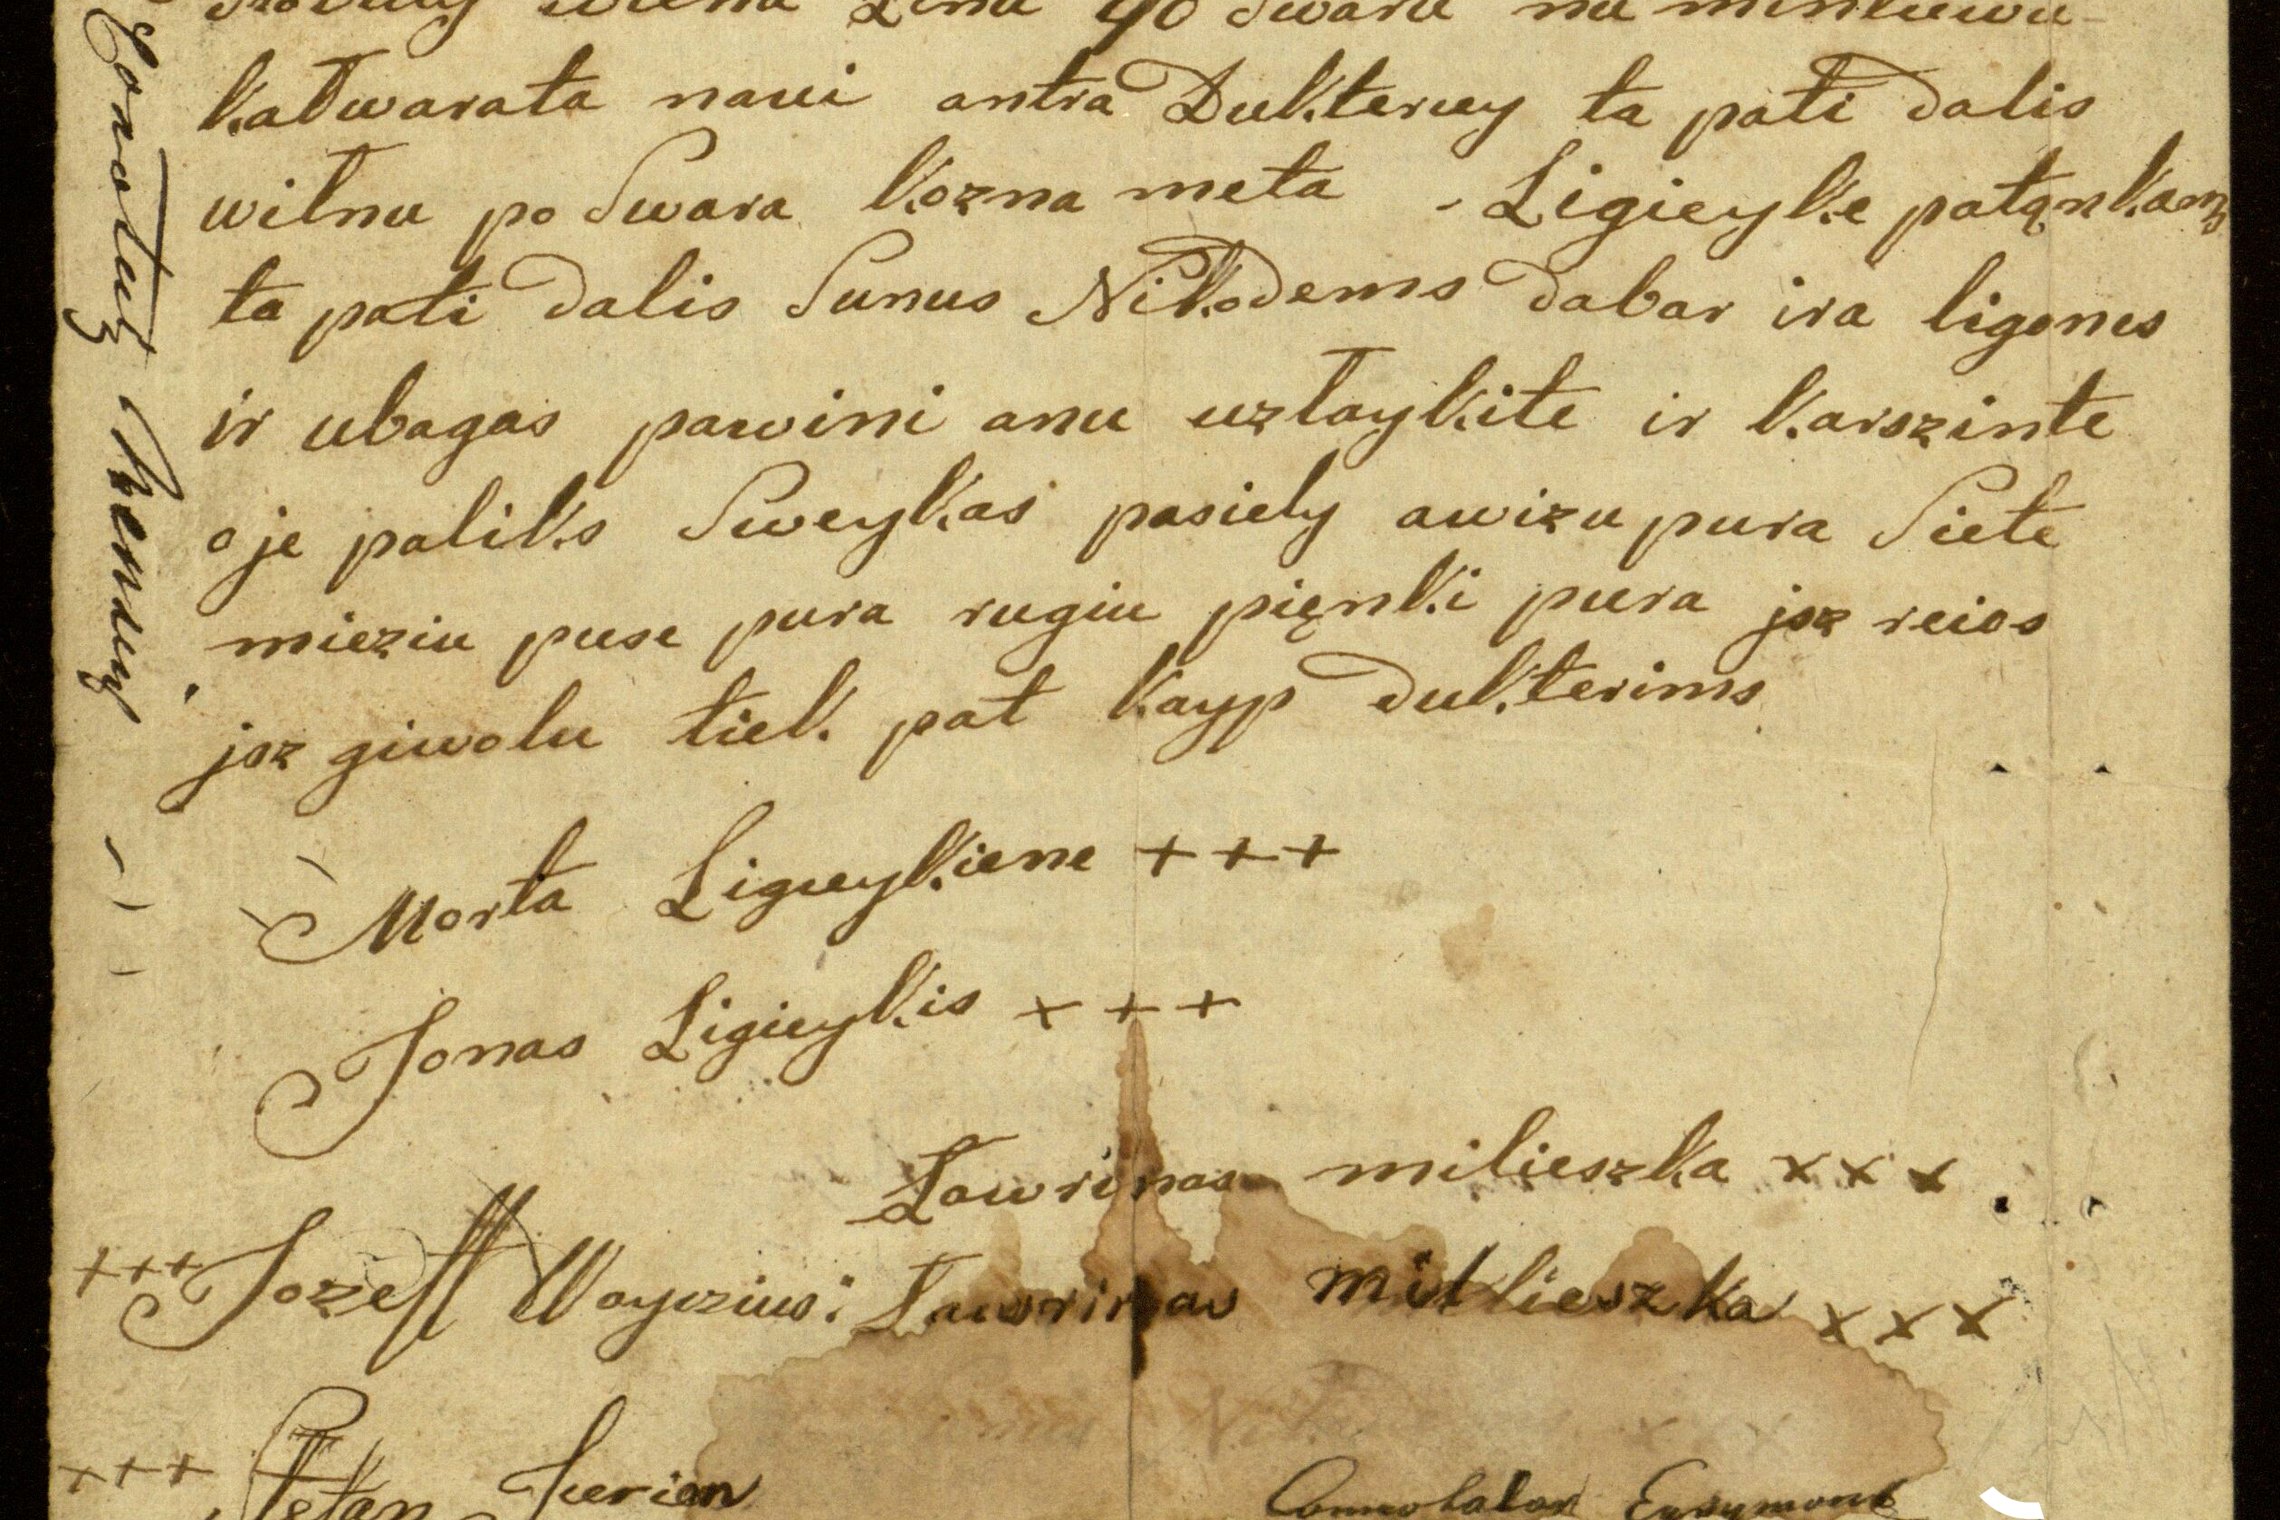 wiena Linu 40 Swaru nu mintuwu
Katwarata naui antra Dukteruey ta pati dalis
wilnu po Swara Kozna meta - Ligieyke patąnkanz
ta pati dalis Sunus Nikodems dabar ira ligones
ir ubagas pawini anu uztaykite ir Karszinte
o je paliks Sweykas pasiely awizu pura Siete
mieziu puse pura rugiu pięnki pura jsz reios
jsz giwolu tiek pat Kayp dukterims
Morta Ligieykiene +++
Jonas Ligieykis +++
Lawrinas milieszka xxx
+++ Jozeff Woyczius: Lawrinas milieszka xxx
+++ Stefan Jurien